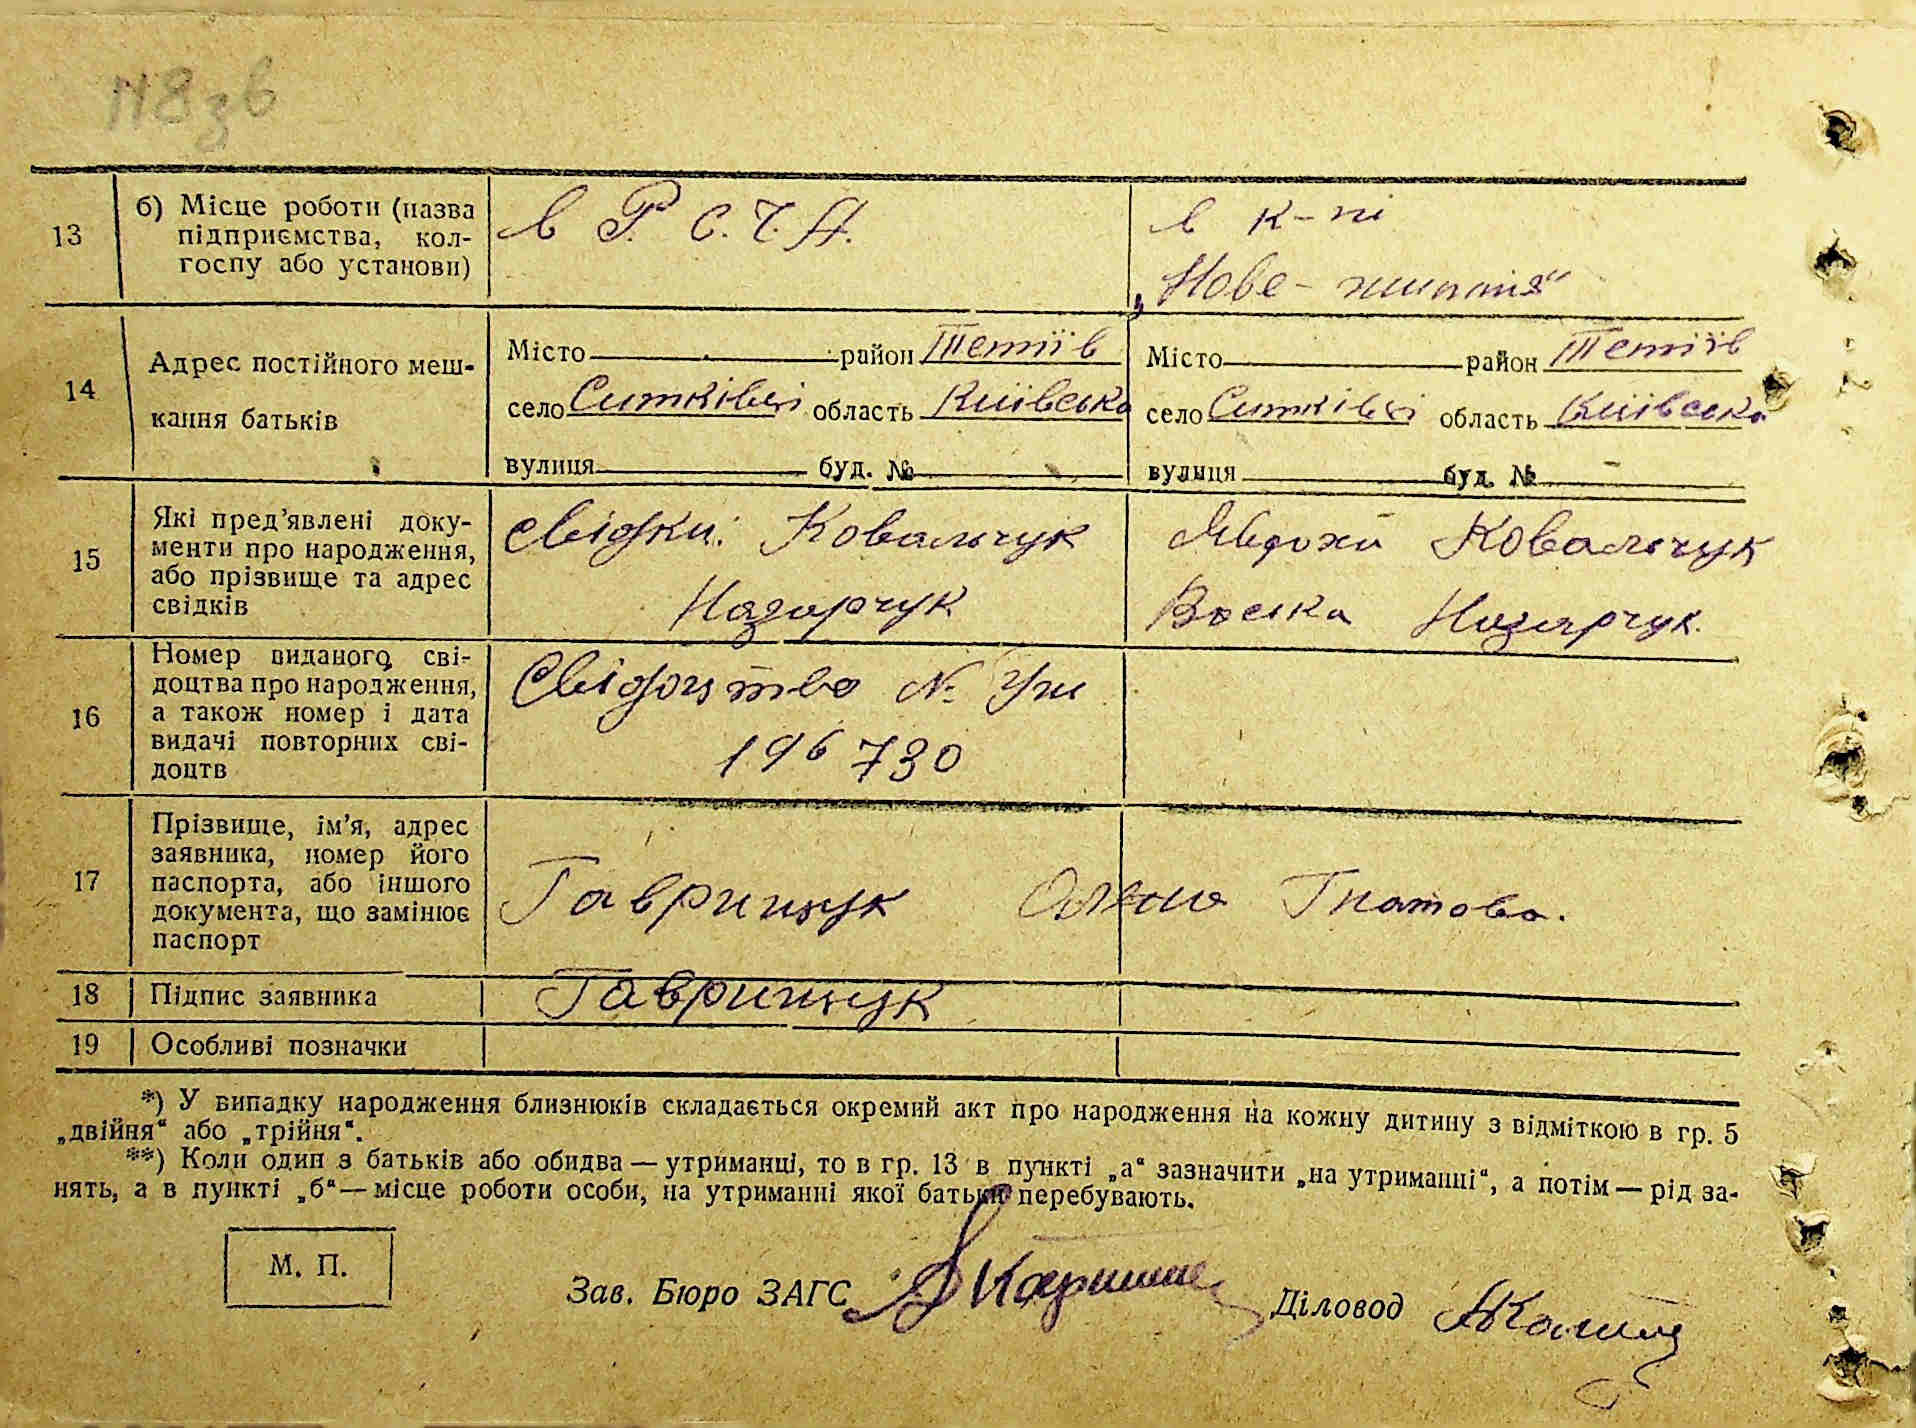 118 зв
13 б) Місце роботи (назва підприємства, колгоспу або установи) в Р. С. Ч. А. в к-пі
„Нове-життя“
14 Адрес постійного меш-
кання батьків
Місто район Тетіїв Місто район Тетіїв
село Ситківці область Київська село Ситківці область Київська
вулиця буд. № вулиця буд. №
15 Які пред’явлені доку-
менти про народження,
або прізвище та адрес
свідків
Свідки: Ковальчук Явдоха Ковальчук
Назарчук Назарчук.
16 Номер виданого сві-
доцтва про народження,
а також номер і дата
видачі повторних сві-
доцтв
Свідоцтво №
196730
17 Прізвище, ім’я, адрес
заявника, номер його
паспорта, або іншого
документа, що замінює
паспорт
Гаврищук Олена Гнатова.
18 Підпис заявника Гаврищук
19 Особливі позначки
*) У випадку народження близнюків складається окремий акт про народження на кожну дитину з відміткою в гр. 5
„двійня“ або „трійня“.
**) Коли один з батьків або обидва — утриманці, то в гр. 13 в пункті „а“ зазначити „на утриманні“, а потім — рід за-
нять, а в пункті „б“ — місце роботи особи, на утриманні якої батьки перебувають.
М. П.
Зав. Бюро ЗАГС Діловод